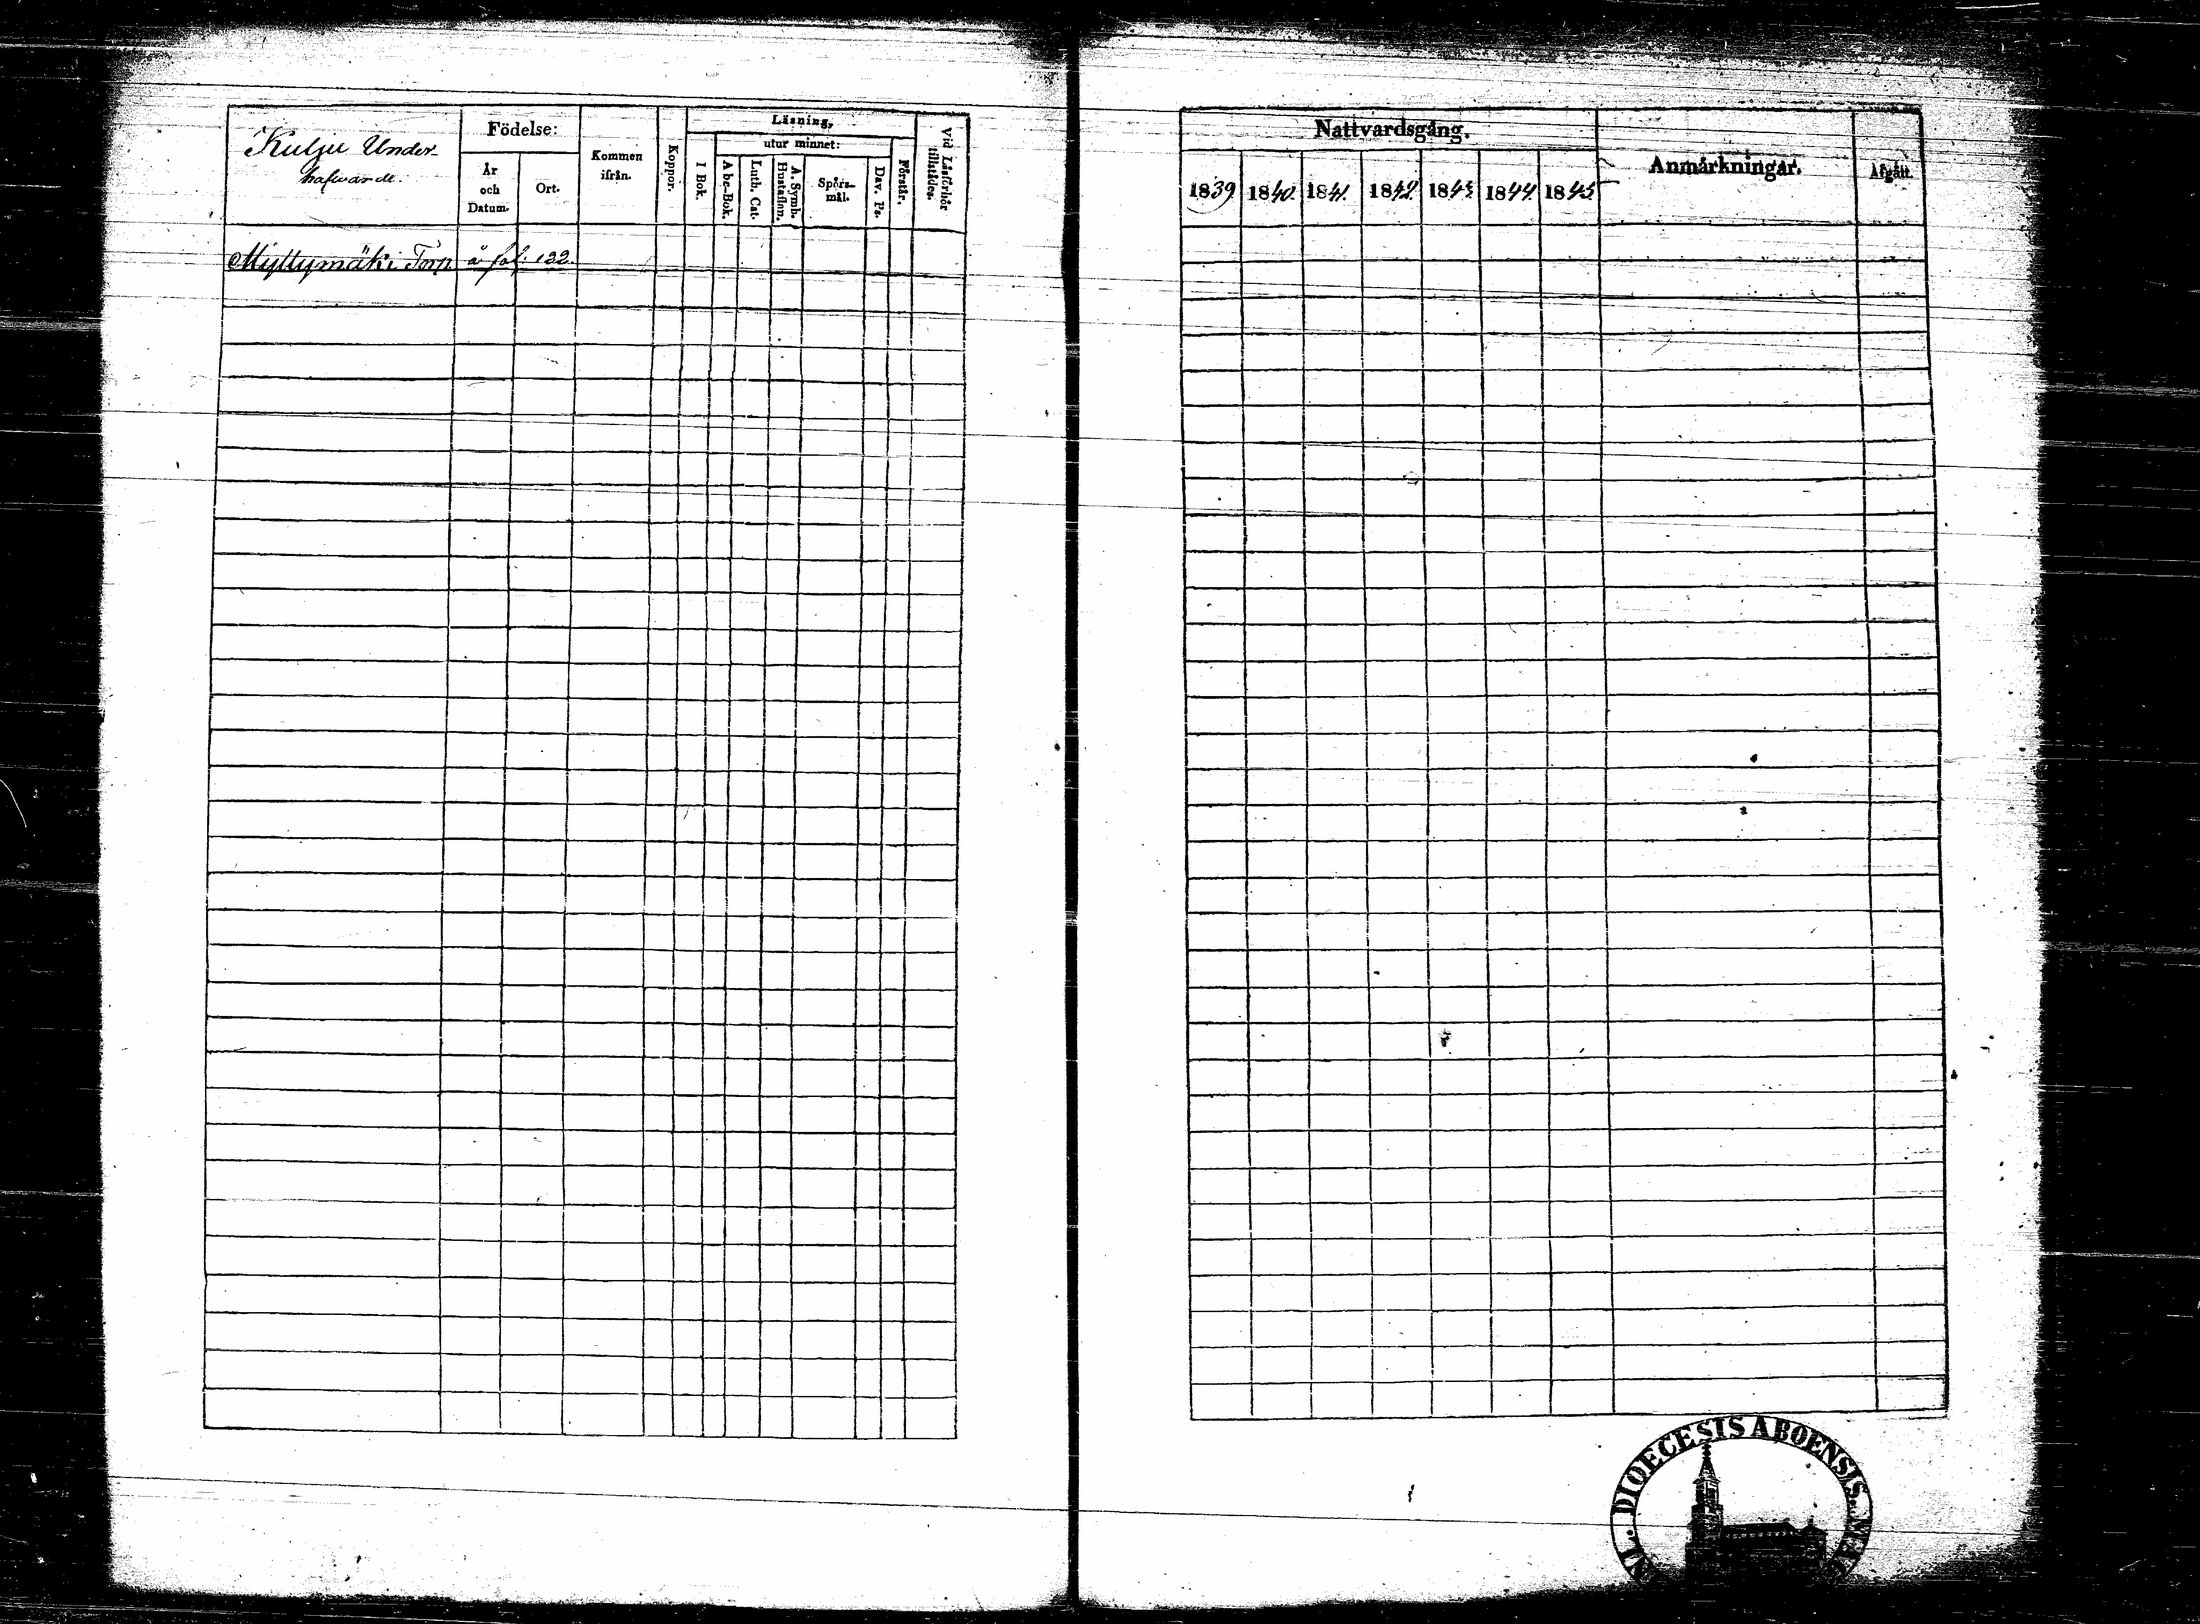 Kulju Under-
hafwande.
Födelse:
År
och
Datum.
Ort.
Kommen
ifrån.
Koppor.
Läsning,
utur minnet:
I Bok.
Abc-Bok.
Luth. Cat.
A. Symb.
Hustaflon.
Spörs-
mål.
Dav. Ps.
Förstår.
Vid Läsförhör
tillstädes.
Myllymäki Torp å fol: 122.
Nattvardsgång.
1839 1840. 1841. 1842. 1843. 1844. 1845
Anmärkningar.
Afgått.
DIOECESIS ABOENSIS.